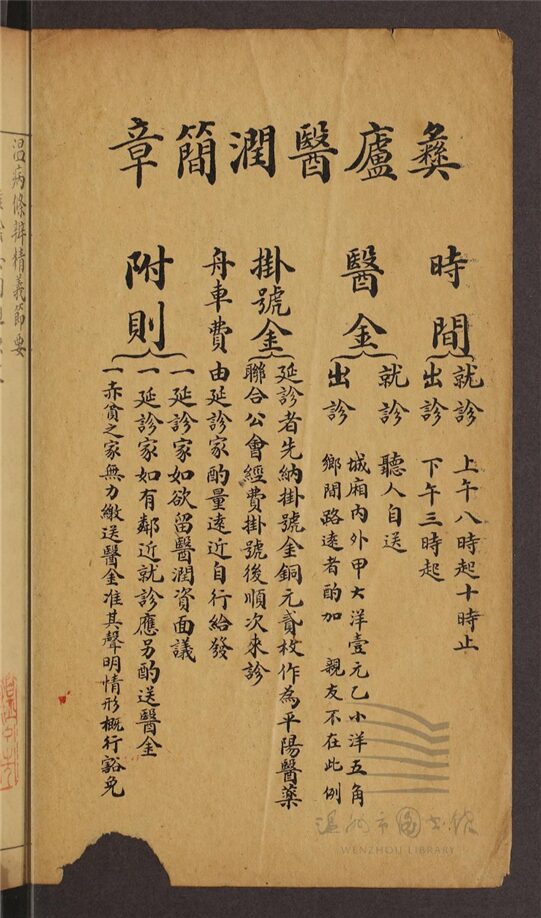 彝廬醫潤簡章
時間
就診 上午八時起十時止
出診 下午三時起
醫金
就診 聽人自送
出診 城廂內外甲大洋壹元乙小洋五角
鄉間路遠者酌加 親友不在此例
掛號金
延診者先納掛號金銅元貳枚作為平陽醫藥
聯合公會經費掛號後順次來診
舟車費 由延診家酌量遠近自行給發
附則
一延診家如欲留醫潤資面議
一延診家如有鄰近就診應另酌送醫金
一赤貧之家無力繳送醫金准其聲明情形概行豁免
温病條辨精義節要
温州市图书馆
WENZHOU LIBRARY